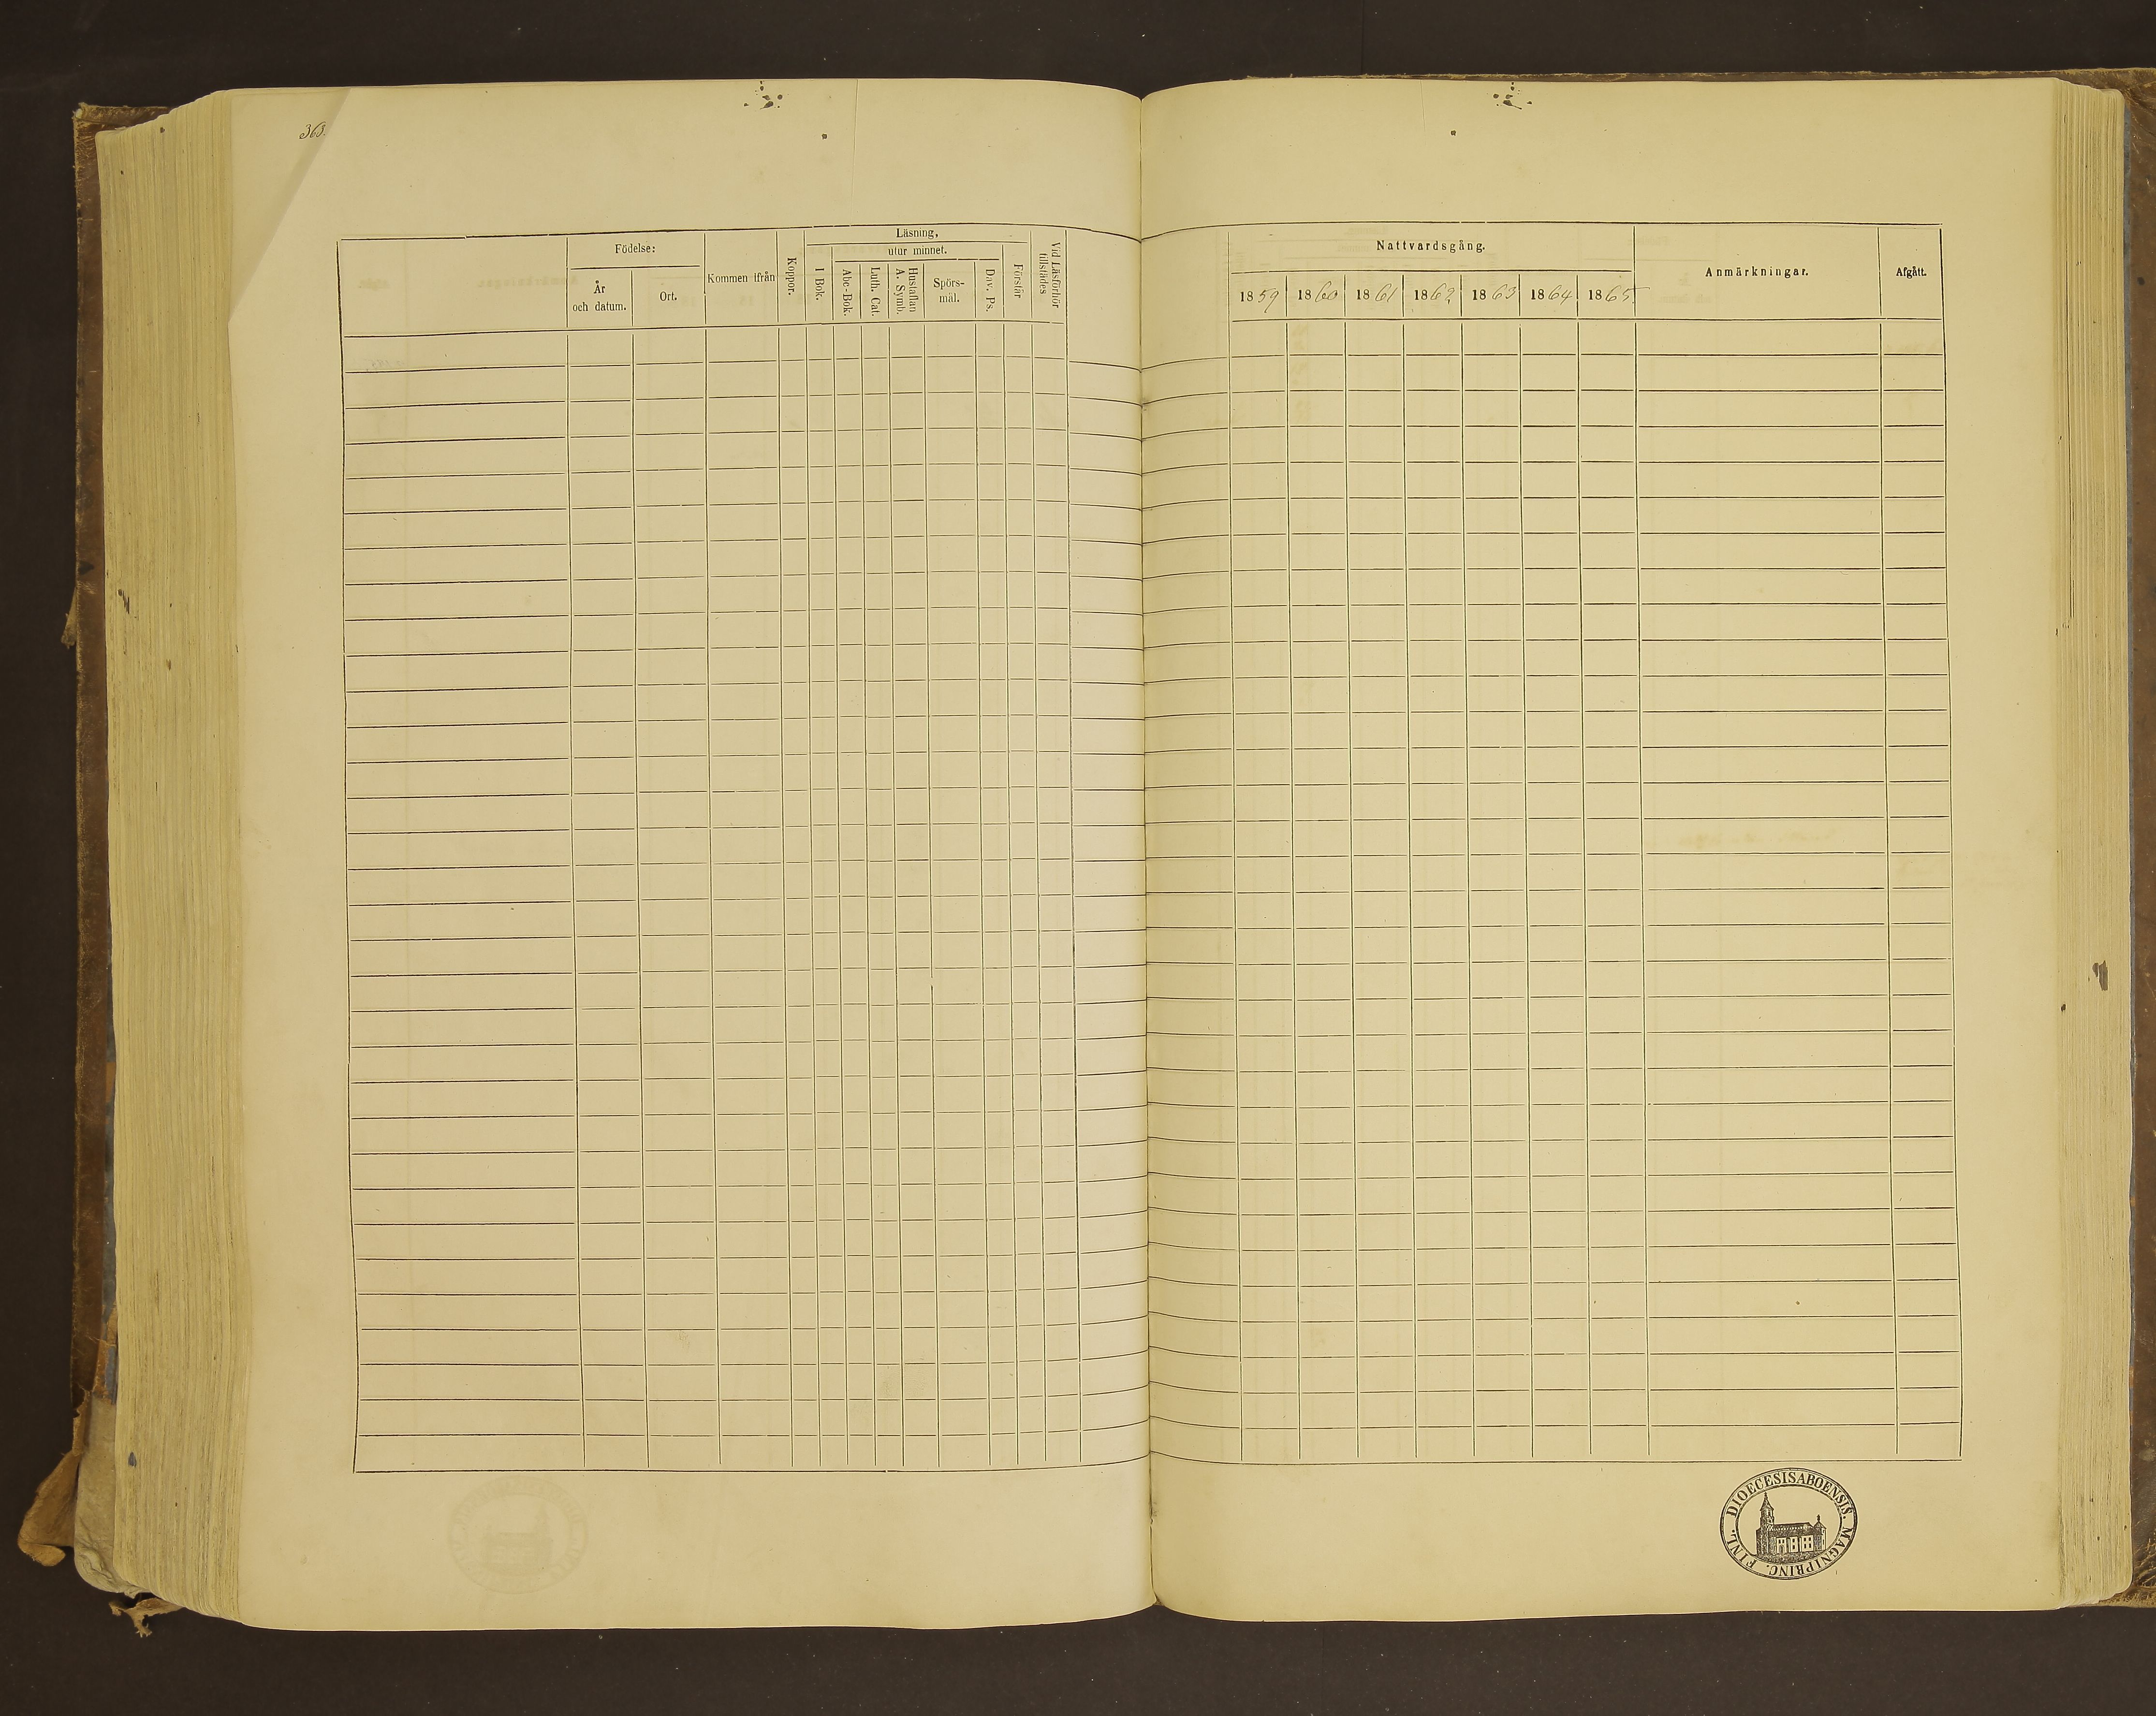 363.
Födelse:
År
och datum.
Ort.
Kommen ifrån
Koppor.
Läsning,
utur minnet.
I Bok.
Abc-Bok.
Luth. Cat.
Hustaflan
A. Symb.
Spörs-
mål.
Dav. Ps.
Förstår
Vid Läsförhör
tillstädes
Nattvardsgång.
1859 1860 1861 1862 1863 1864 1865
Anmärkningar.
Afgått.
DIOECESIS ABOENSIS. MAGNI PRINC. FINL.